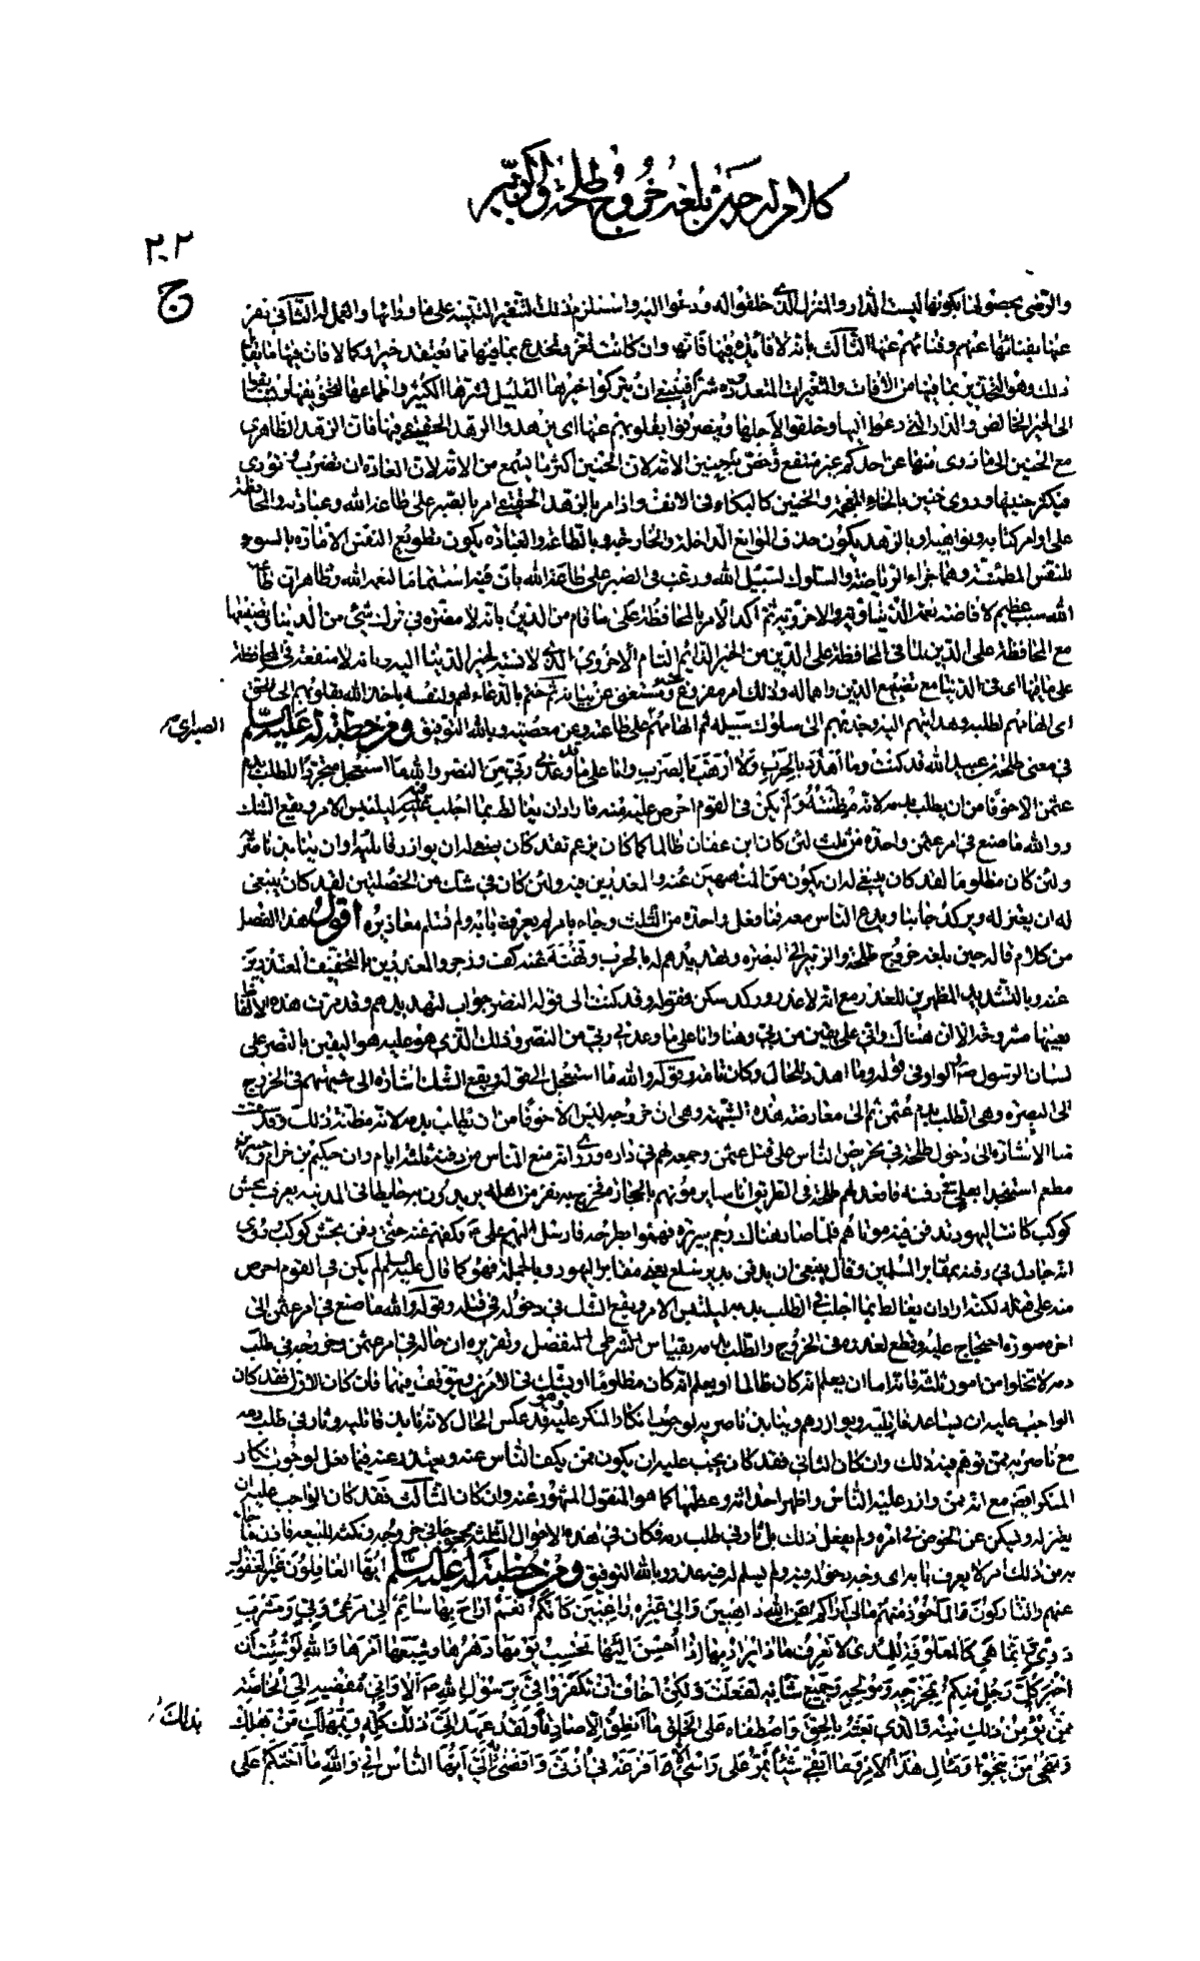 كلام له حين بلغه خروج طلحة والزبير
٢٠٢
ج
والرضى بحصولنا بكونها ليست الدار والمنزل الذى خلقوا له ودعوا اليه واستلزم ذلك التنفير التنبيه على ما وراءها والعمل له الثانى نفر
عنها بفنائها عنهم وفنائهم عنها الثالث بانه لا فائدة فيها فانها وان كانت تغر وتخدع بما فيها مما يعتقد خيرا وكمالا فان فيها ما يقابل
ذلك وهو التحذير بما فيها من الآفات والتغيرات المعدودة شرا فينبغى ان يتركوا خيرها القليل لشرها الكثير واطماعها لمخوفيها
الى الخير الخالص والدار التى دعوا اليها وخلقوا لاجلها وينصرفوا بقلوبهم عنها اى يزهدوا الزهد الحقيقى فيها فان الزهد الظاهرى
مع الحنين الى ما زوى منها عن احدكم غير منتفع به وخص حنين الامة لان الحنين اكثر ما يسمع من الامة لان العادة ان تضرب وتؤذى
فيكثر حنينها وروى خنين بالخاء المعجمة والخنين كالبكاء فى الانف واذا امر بالزهد الحقيقى امر بالصبر على طاعة الله وعبادته والمحافظة
على اوامر كتابه ونواهيه اذ بالزهد يكون حذف الموانع الداخلة والخارجة وبالطاعة والعبادة يكون تطويع النفس الامارة بالسوء
للنفس المطمئنة وهما جزءا الرياضة والسلوك لسبيل الله ورغب فى الصبر على طاعة الله بان فيه استتماما لنعمة الله وظاهر ان طاعة
الله سبب عظيم لافاضة نعمه الدنياوية والاخروية ثم اكد الامر بالمحافظة على ما قام من الدين بانه لا مضرة فى ترك شىء من الدنيا وتضييعها
مع المحافظة على الدين لما فى المحافظة على الدين من الخير الدائم التام الاخروى الذى لا نسبة لخير الدنيا اليه وبانه لا منفعة فى المحافظة
على ما فيها اى فى الدنيا مع تضييع الدين واهماله وذلك امر مفروغ عنه ومستغنى عن بيانه ثم ختم بالدعاء لهم ولنفسه باخذ الله بقلوبهم الى الحق
اى الهامهم لطلبه وهدايتهم اليه وجذبهم الى سلوك سبيله ثم الهامهم الصبر على طاعته وعن معصيته وبالله التوفيق ومن خطبة له عليه السلم
فى معنى طلحة بن عبيد الله قد كنت وما اهدد بالحرب ولا ارهب بالضرب وانا على ما وعدنى ربى من النصر والله ما استعجل متجردا للطلب بدم
عثمن الا خوفا من ان يطلب بدمه لانه مظنته ولم يكن فى القوم احرص عليه منه فاراد ان يغالط بما اجلب فيه ليلتبس الامر ويقع الشك
ووالله ما صنع فى امر عثمن واحدة من ثلث لئن كان ابن عفان ظالما كما كان يزعم لقد كان ينبغى له ان يوازر قاتليه او ان ينابذ ناصريه
ولئن كان مظلوما لقد كان ينبغى له ان يكون من المنهنهين عنه والمعذرين فيه ولئن كان فى شك من الخصلتين لقد كان ينبغى
له ان يعتزله ويركد جانبا ويدع الناس معه فما فعل واحدة من الثلث وجاء بامر لم يعرف بابه ولم تسلم معاذيره اقول هذا الفصل
من كلام قاله حين بلغه خروج طلحة والزبير الى البصرة وتهديدهم له بالحرب ونهنه عنه كف وزجر والمعذرين بالتخفيف المعتذرين
عنه وبالتشديد المظهرين للعذر مع انه لا عذر وركد سكن فقوله وقد كنت الى قوله النصر جواب لتهديدهم وقد مرت هذه الالفاظ
بعينها مشروحة الا ان هناك وانى على يقين من ربى وهنا وانا على ما وعدنى ربى من النصر وذلك الذى هو عليه هو اليقين بالنصر على
لسان الرسول ص والواو فى قوله وما اهدد للحال وكان تامة وقوله والله ما استعجل الى قوله ويقع الشك اشارة الى شبهتهم فى الخروج
الى البصرة وهى الطلب بدم عثمن ثم الى معارضة هذه الشبهة وهى ان خروجه ليس الا خوفا من ان يطلب بدمه لانه مظنته ذلك وقد سبقت
منا الاشارة الى دخول طلحة فى تحريض الناس على قتل عثمن وجمعه لهم فى داره وروى انه منع الناس من دفنه ثلثة ايام وان حكيم بن حزام وجبير بن
مطعم استنجدا بعلى ع فى دفنه فاقعد لهم طلحة فى الطريق اناسا يرمونهم بالحجارة فخرج به نفر من اهله يريدون به حائطا فى المدينة يعرف بحش
كوكب كانت اليهود تدفن فيه موتاهم فلما صار هناك رجم سريره فهموا بطرحه فارسل اليهم على ع فكفهم عنه حتى دفن بحش كوكب وروى
انه جادل فى دفنه بمقابر المسلمين وقال ينبغى ان يدفن بدير سلع يعنى مقابر اليهود وبالجملة فهو كما قال عليه السلم لم يكن فى القوم احرص
منه على قتله لكنه اراد ان يغالط بما اجلب فى الطلب بدمه ليلتبس الامر ويقع الشك فى دخوله فى قتله وقوله والله ما صنع فى امر عثمن الى
اخره صورة احتجاج عليه وقطع لعذره فى الخروج والطلب بدمه بقياس شرطى منفصل وتقريره ان حاله فى امر عثمن وخروجه فى طلب
دمه لا تخلوا من امور ثلثة فانه اما ان يعلم انه كان ظالما او يعلم انه كان مظلوما او يشك فى الامرين ويتوقف فيهما فان كان الاول فقد كان
الواجب عليه ان يساعد قاتليه ويوازرهم وينابذ ناصريه لوجوب انكار المنكر عليه وهو قد عكس الحال لانه نابذ قاتليه وثار فى طلب دمه
مع ناصريه ممن توهم فيه ذلك وان كان الثانى فقد كان يجب عليه ان يكون ممن يكف الناس عنه ويعتذر عنه فيما فعل لوجوب انكار
المنكر ايضا مع انه ممن وازر عليه الناس واظهر احداثه وعظمها كما هو المنقول المشهور عنه وان كان الثالث فقد كان الواجب عليه ان
يعتزله ويسكن عن الخوض فى امره ولم يفعل ذلك بل ثار فى طلب دمه فكان فى هذه الاحوال الثلثة محجوجا فى خروجه ونكثه للبيعه فاذن ما جاء
به من ذلك امر لا يعرف بابه اى وجه دخوله فيه ولم يسلم له فيه عذر وبالله التوفيق ومن خطبة له عليه السلم ايها الغافلون غير المغفول
عنهم والتاركون المأخوذ منهم ما لى اراكم عن الله ذاهبين والى غيره راغبين كانكم نعم اراح بها سائم الى مرعى وبى ومشرب
دوى انما هى كالمعلوفة للمدى لا تعرف ما ذا يراد بها اذا احسن اليها تحسب يومها دهرها وشبعها امرها والله لو شئت ان
اخبر كل رجل منكم بمخرجه ومولجه وجميع شأنه لفعلت ولكن اخاف ان تكفروا فى برسول الله ص الا وانى مفضيه الى الخاصة
ممن يؤمن ذلك منه والذى بعثه بالحق واصطفاه على الخلق ما انطق الا صادقا ولقد عهد الى ذلك كله وبمهلك من يهلك
ومنجى من ينجو ومآل هذا الامر وما ابقى شيئا يمر على راسى الا افرغه فى اذنى وافضى به الى ايها الناس انى والله ما احثكم على